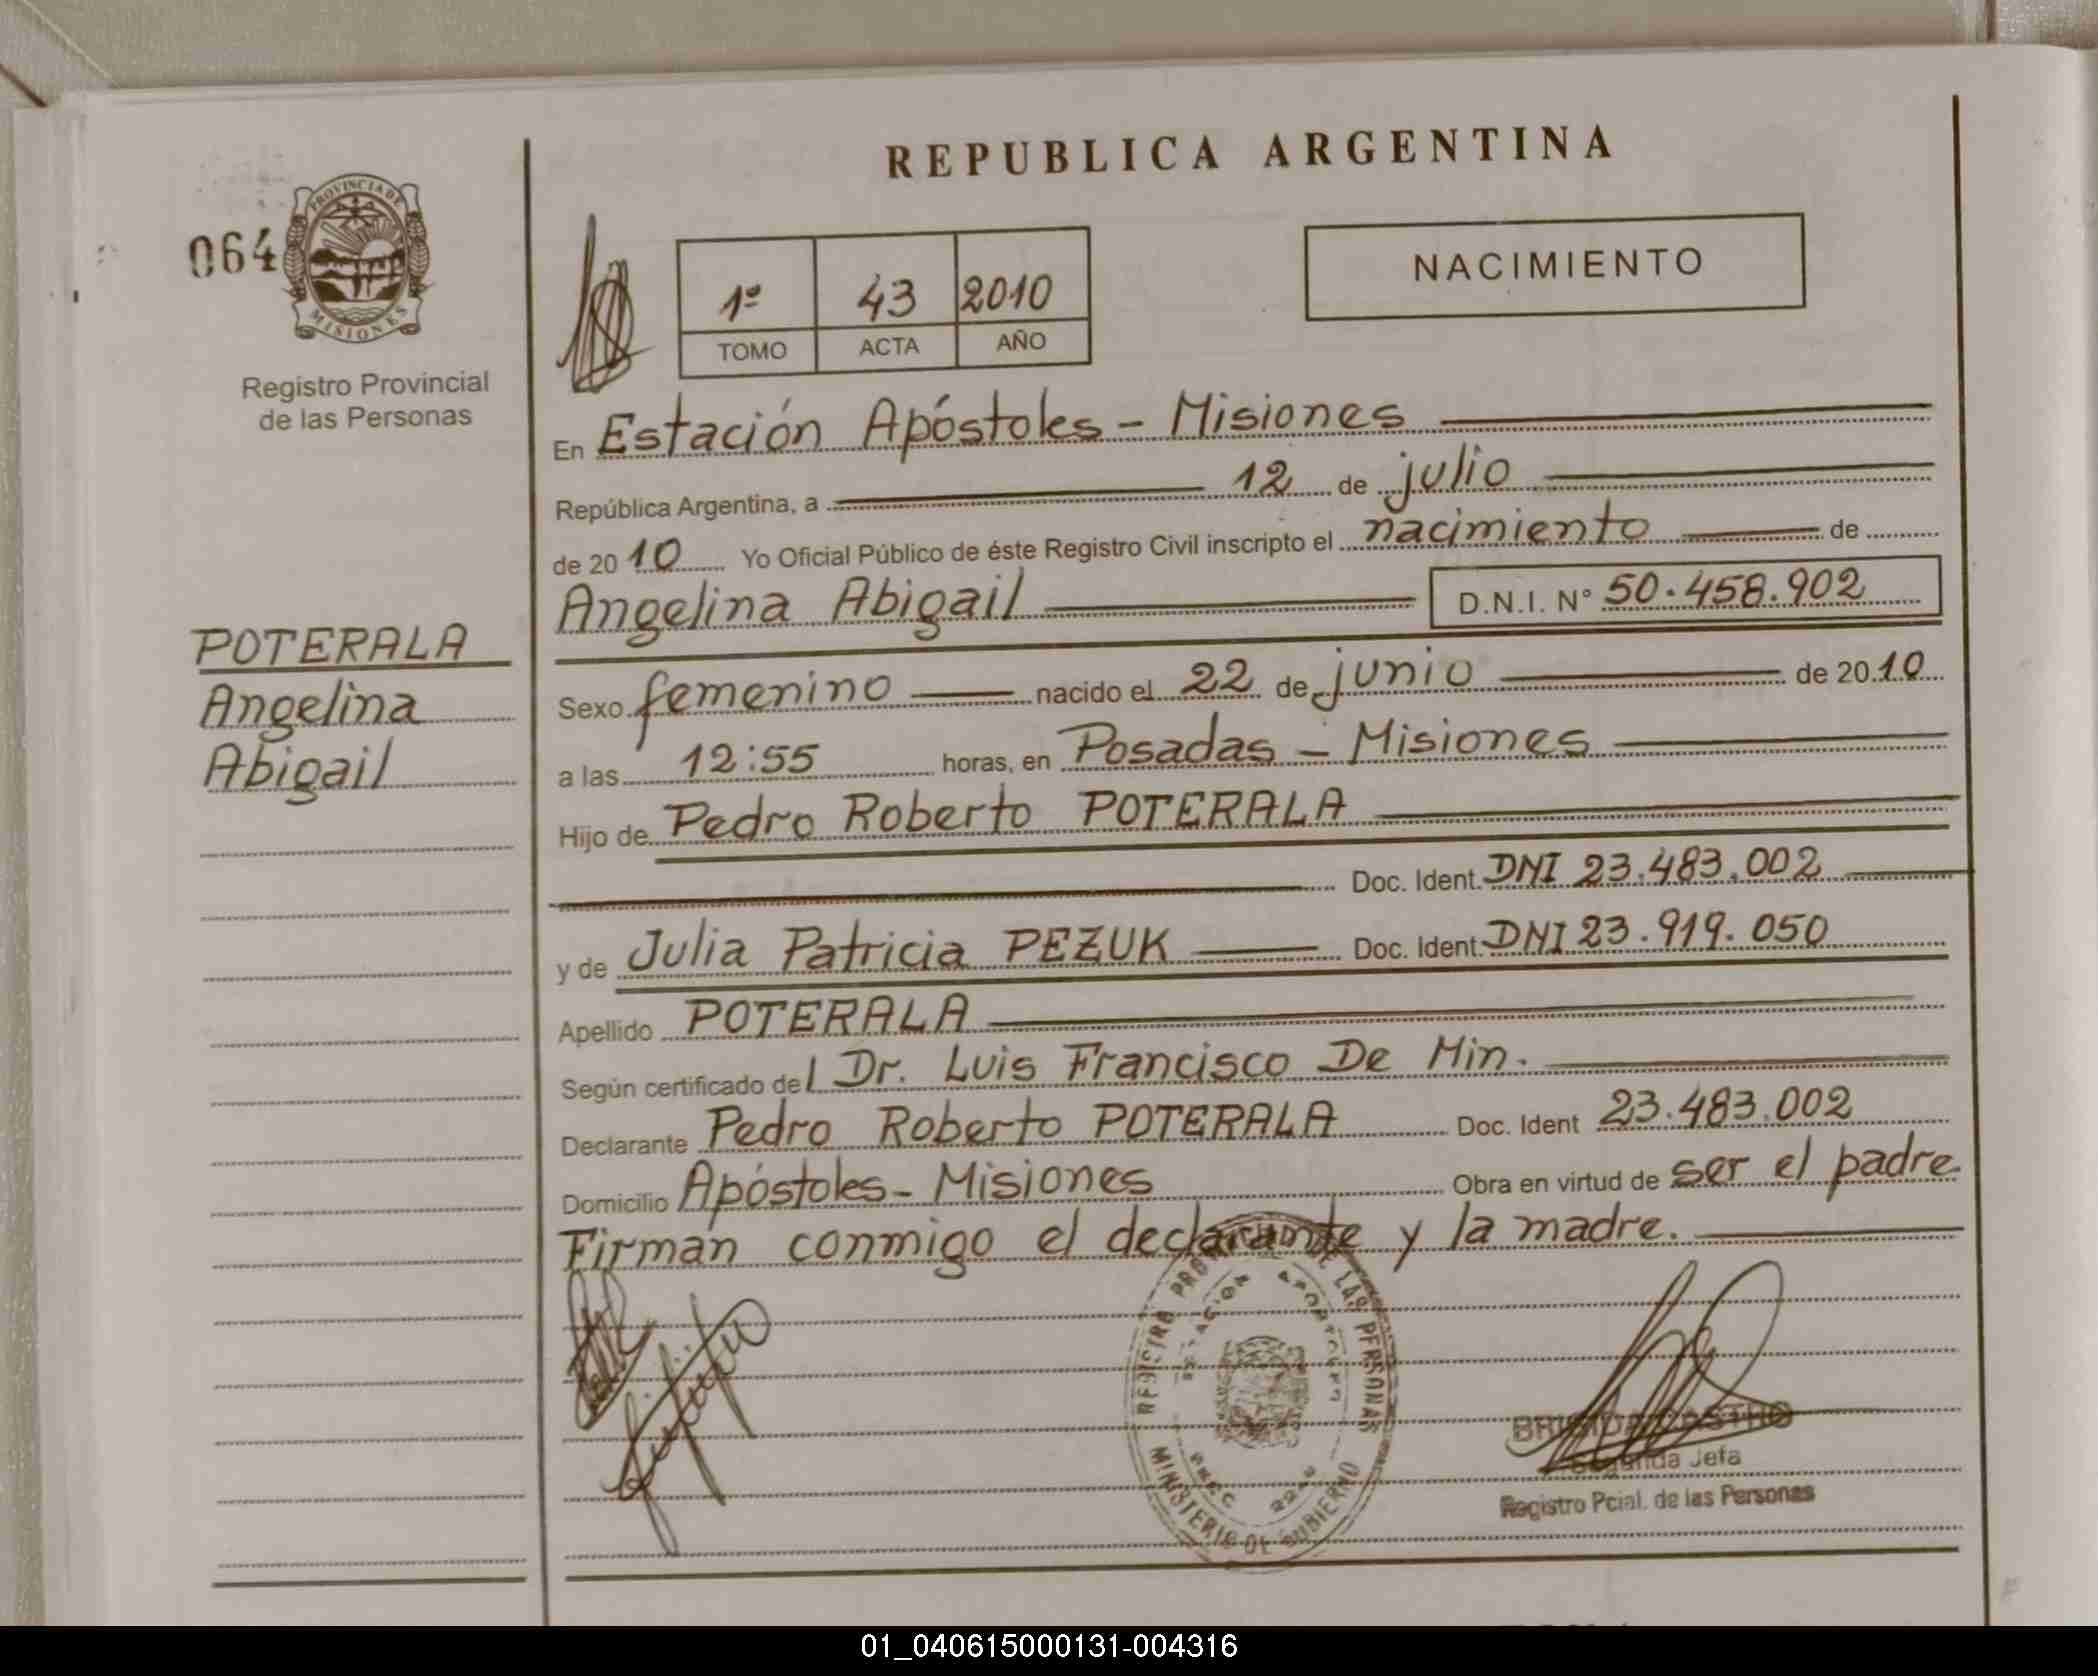 REPUBLICA ARGENTINA
064
PROVINCIA DE
MISIONES
Registro Provincial
de las Personas
1º 43 2010
TOMO ACTA AÑO
NACIMIENTO
En Estación Apóstoles - Misiones
República Argentina, a 12 de julio
de 2010 Yo Oficial Público de éste Registro Civil inscripto el nacimiento de
Angelina Abigail D.N.I. Nº 50.458.902
POTERALA
Angelina
Abigail
Sexo femenino nacido el 22 de junio de 2010
a las 12:55 horas, en Posadas - Misiones
Hijo de Pedro Roberto POTERALA
Doc. Ident. DNI 23.483.002
y de Julia Patricia PEZUK Doc. Ident. DNI 23.919.050
Apellido POTERALA
Según certificado del Dr. Luis Francisco De Min.
Declarante Pedro Roberto POTERALA Doc. Ident 23.483.002
Domicilio Apóstoles - Misiones Obra en virtud de ser el padre.
Firman conmigo el declarante y la madre.
REGISTRO DE LAS PERSONAS
MINISTERIO DE GOBIERNO
BRIGIDA CASTRO
Segunda Jefa
Registro Pcial. de las Personas
01_040615000131-004316